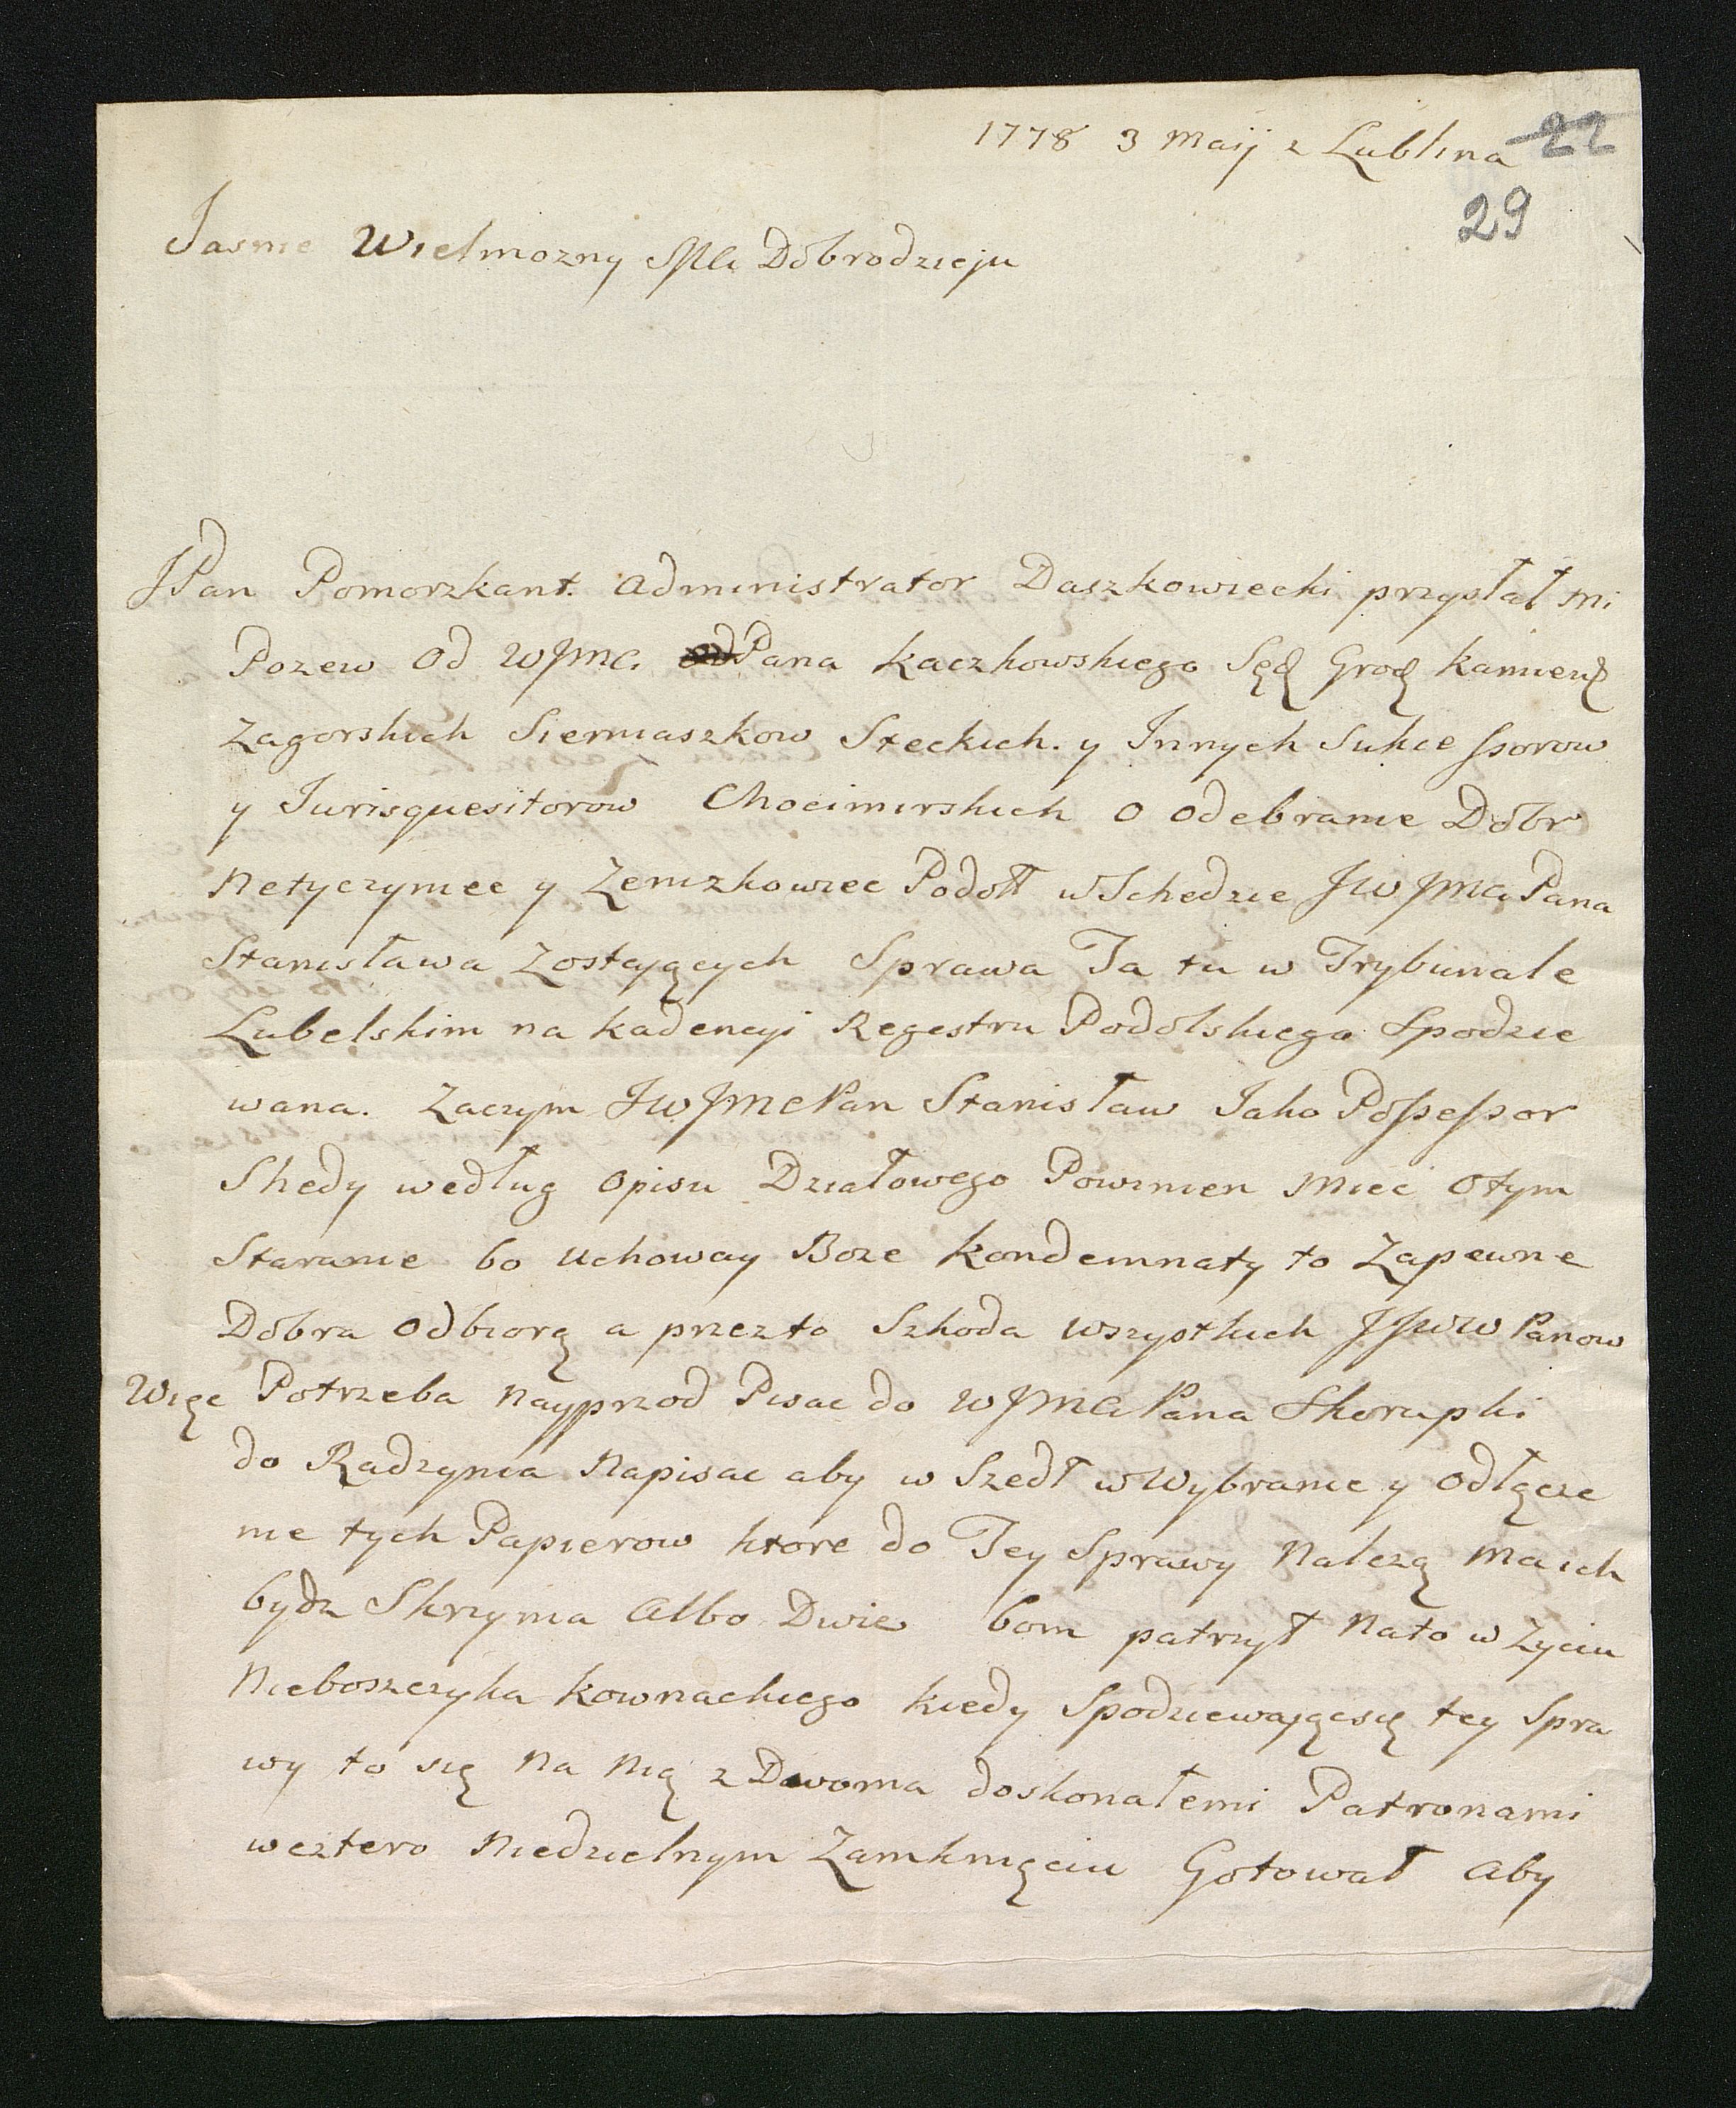 1778 3 Maij z Lublina 22
29
Jasnie Wielmozny Mci Dobrodzieju
JPan Pomorzkant. Administrator Daszkowiecki przysłał mi
Pozew Od WJmc. Pana Kaczkowskiego Sęd Grod Kamien
Zagorskich Siemiaszkow Steckich. y Innych Sukcessorow
y Jurisquesitorow Chocimirskich o odebranie Dobr
Netyczyniec y Zeniszkowiec Podoll w Schedzie JWJmci Pana
Stanisława Zostających Sprawa Ta tu w Trybunale
Lubelskim na kadencyi Regestru Podolskiego Spodzie
wana. Zaczym JWJmc Pan Stanisław Jako Possessor
Shedy według opisu Działowego Powinien Miec Otym
Staranie bo Uchoway Boze Kondemnaty to Zapewne
Dobra Odbiorą a przezto Szkoda wszystkich JJWW Panow
Więc Potrzeba Nayprzod Pisac do WJmci Pana Skorupki
do Radzynia Napisac aby w Szedł w Wybranie y Odłącze
nie tych Papierow ktore do Tey Sprawy Nalezą Ma ich
bydz Skrzynia Albo Dwie bom patrzył Nato w Zyciu
Nieboszczyka Kownackiego kiedy Spodziewającsię tey Spra
wy to się Na Nią z Dwoma doskonałemi Patronami
wcztero Niedzielnym Zamknięciu Gotował Aby